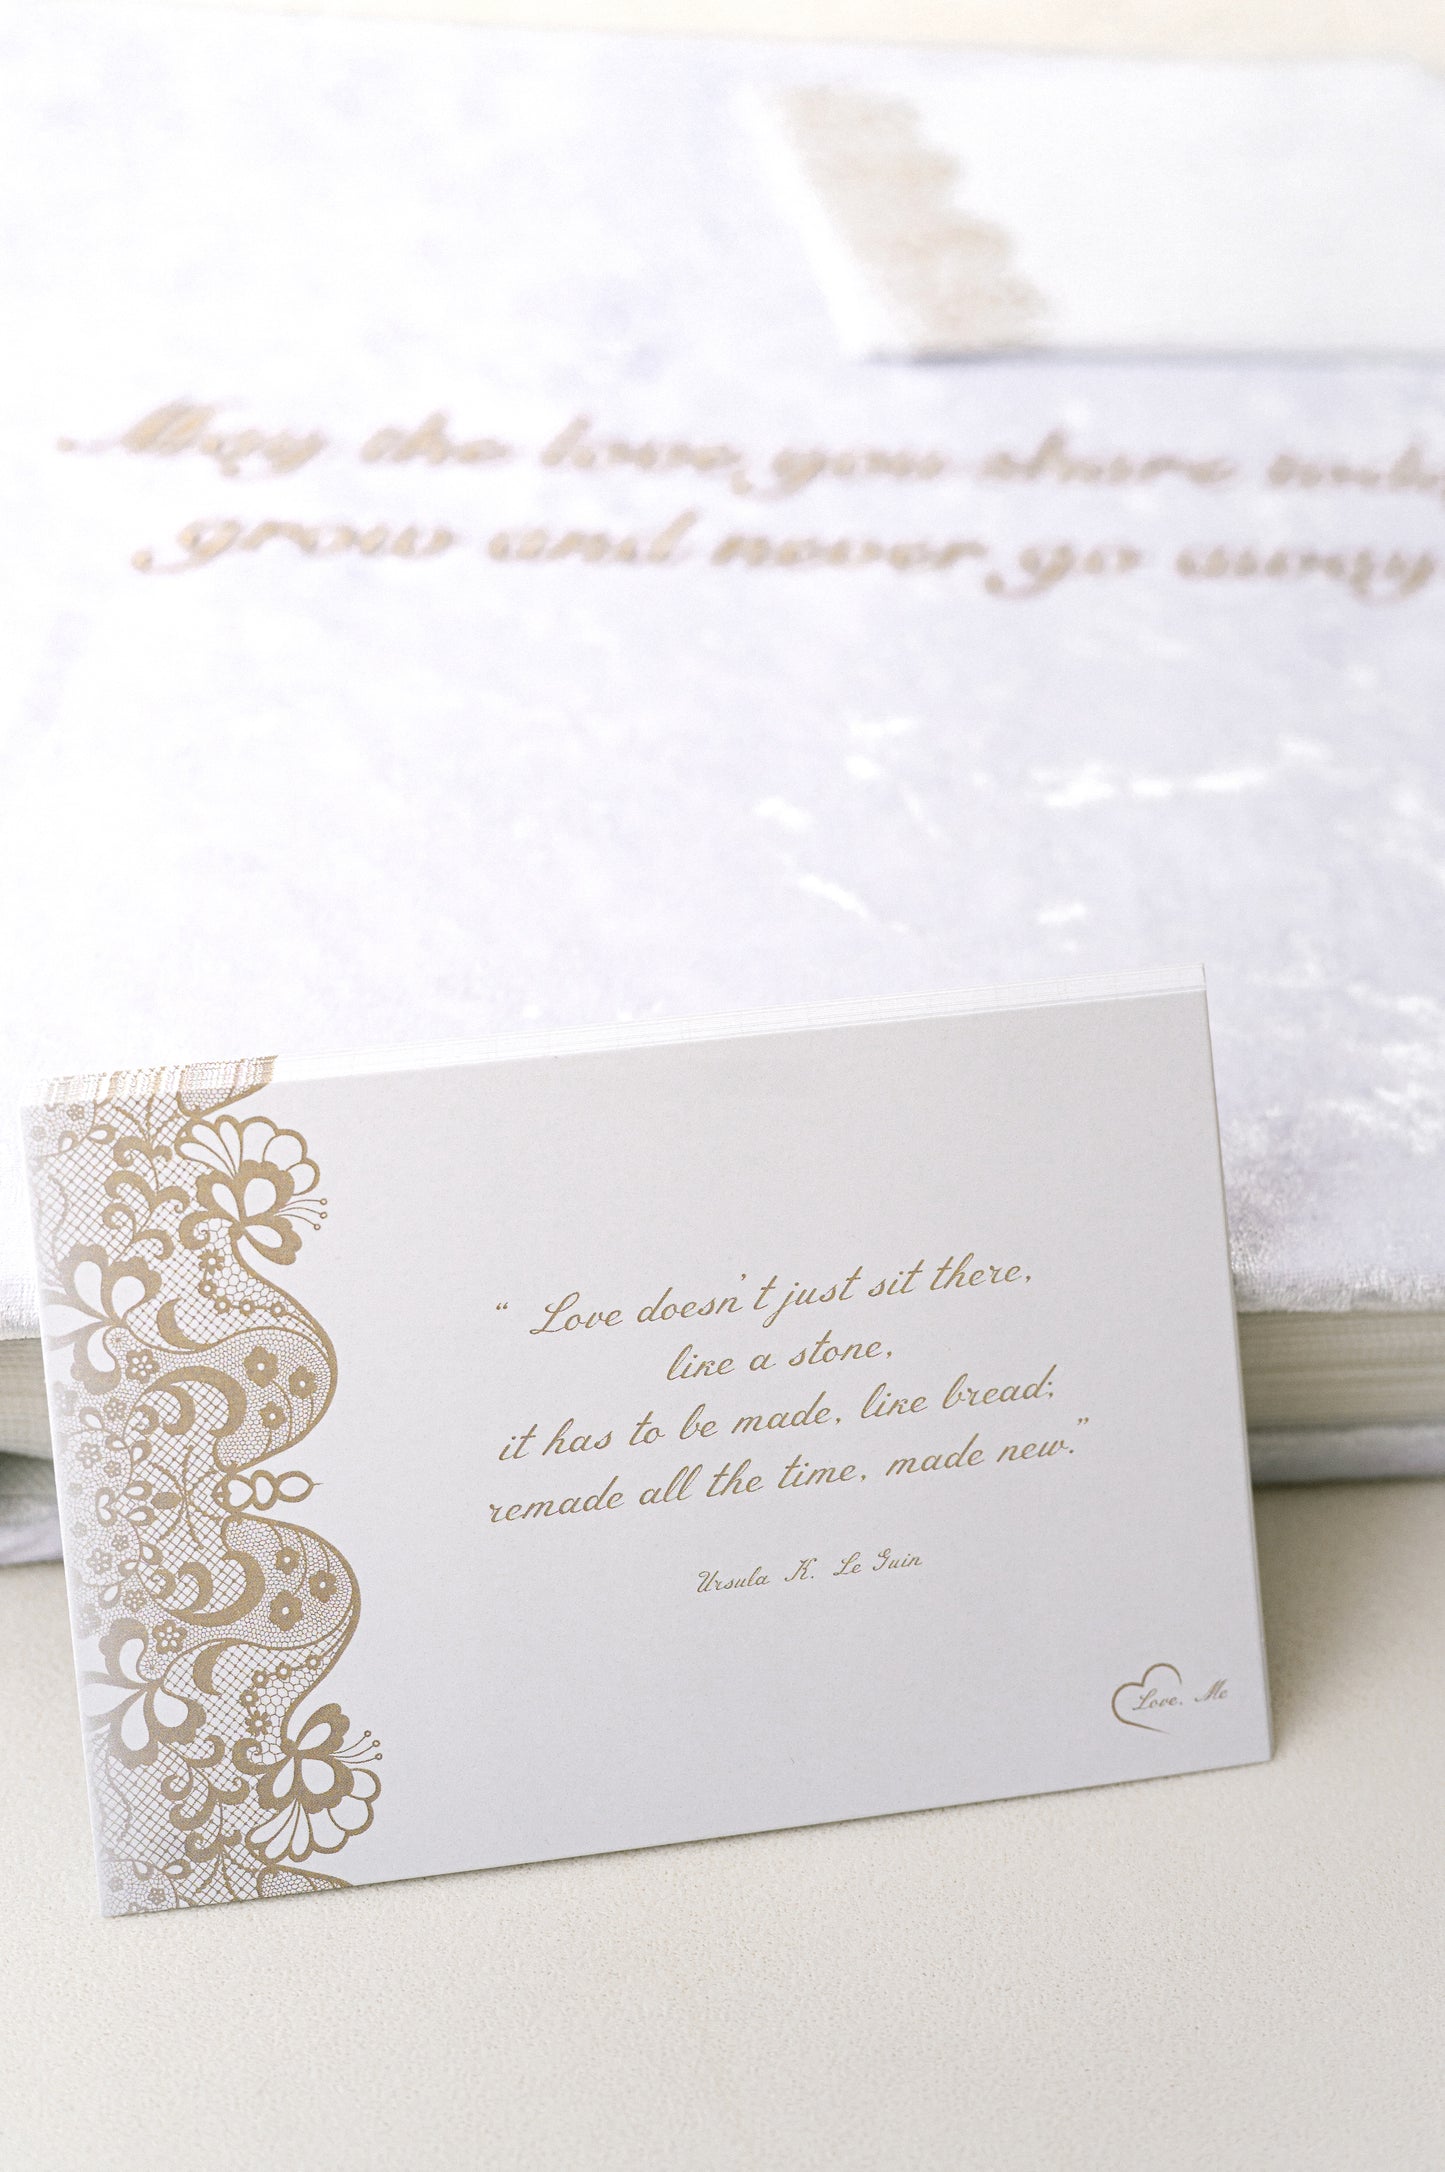 May the love you share only
grow and never go away
“ Love doesn't just sit there,
like a stone,
it has to be made, like bread;
remade all the time, made new.”
Ursula K. Le Guin
Love, Me